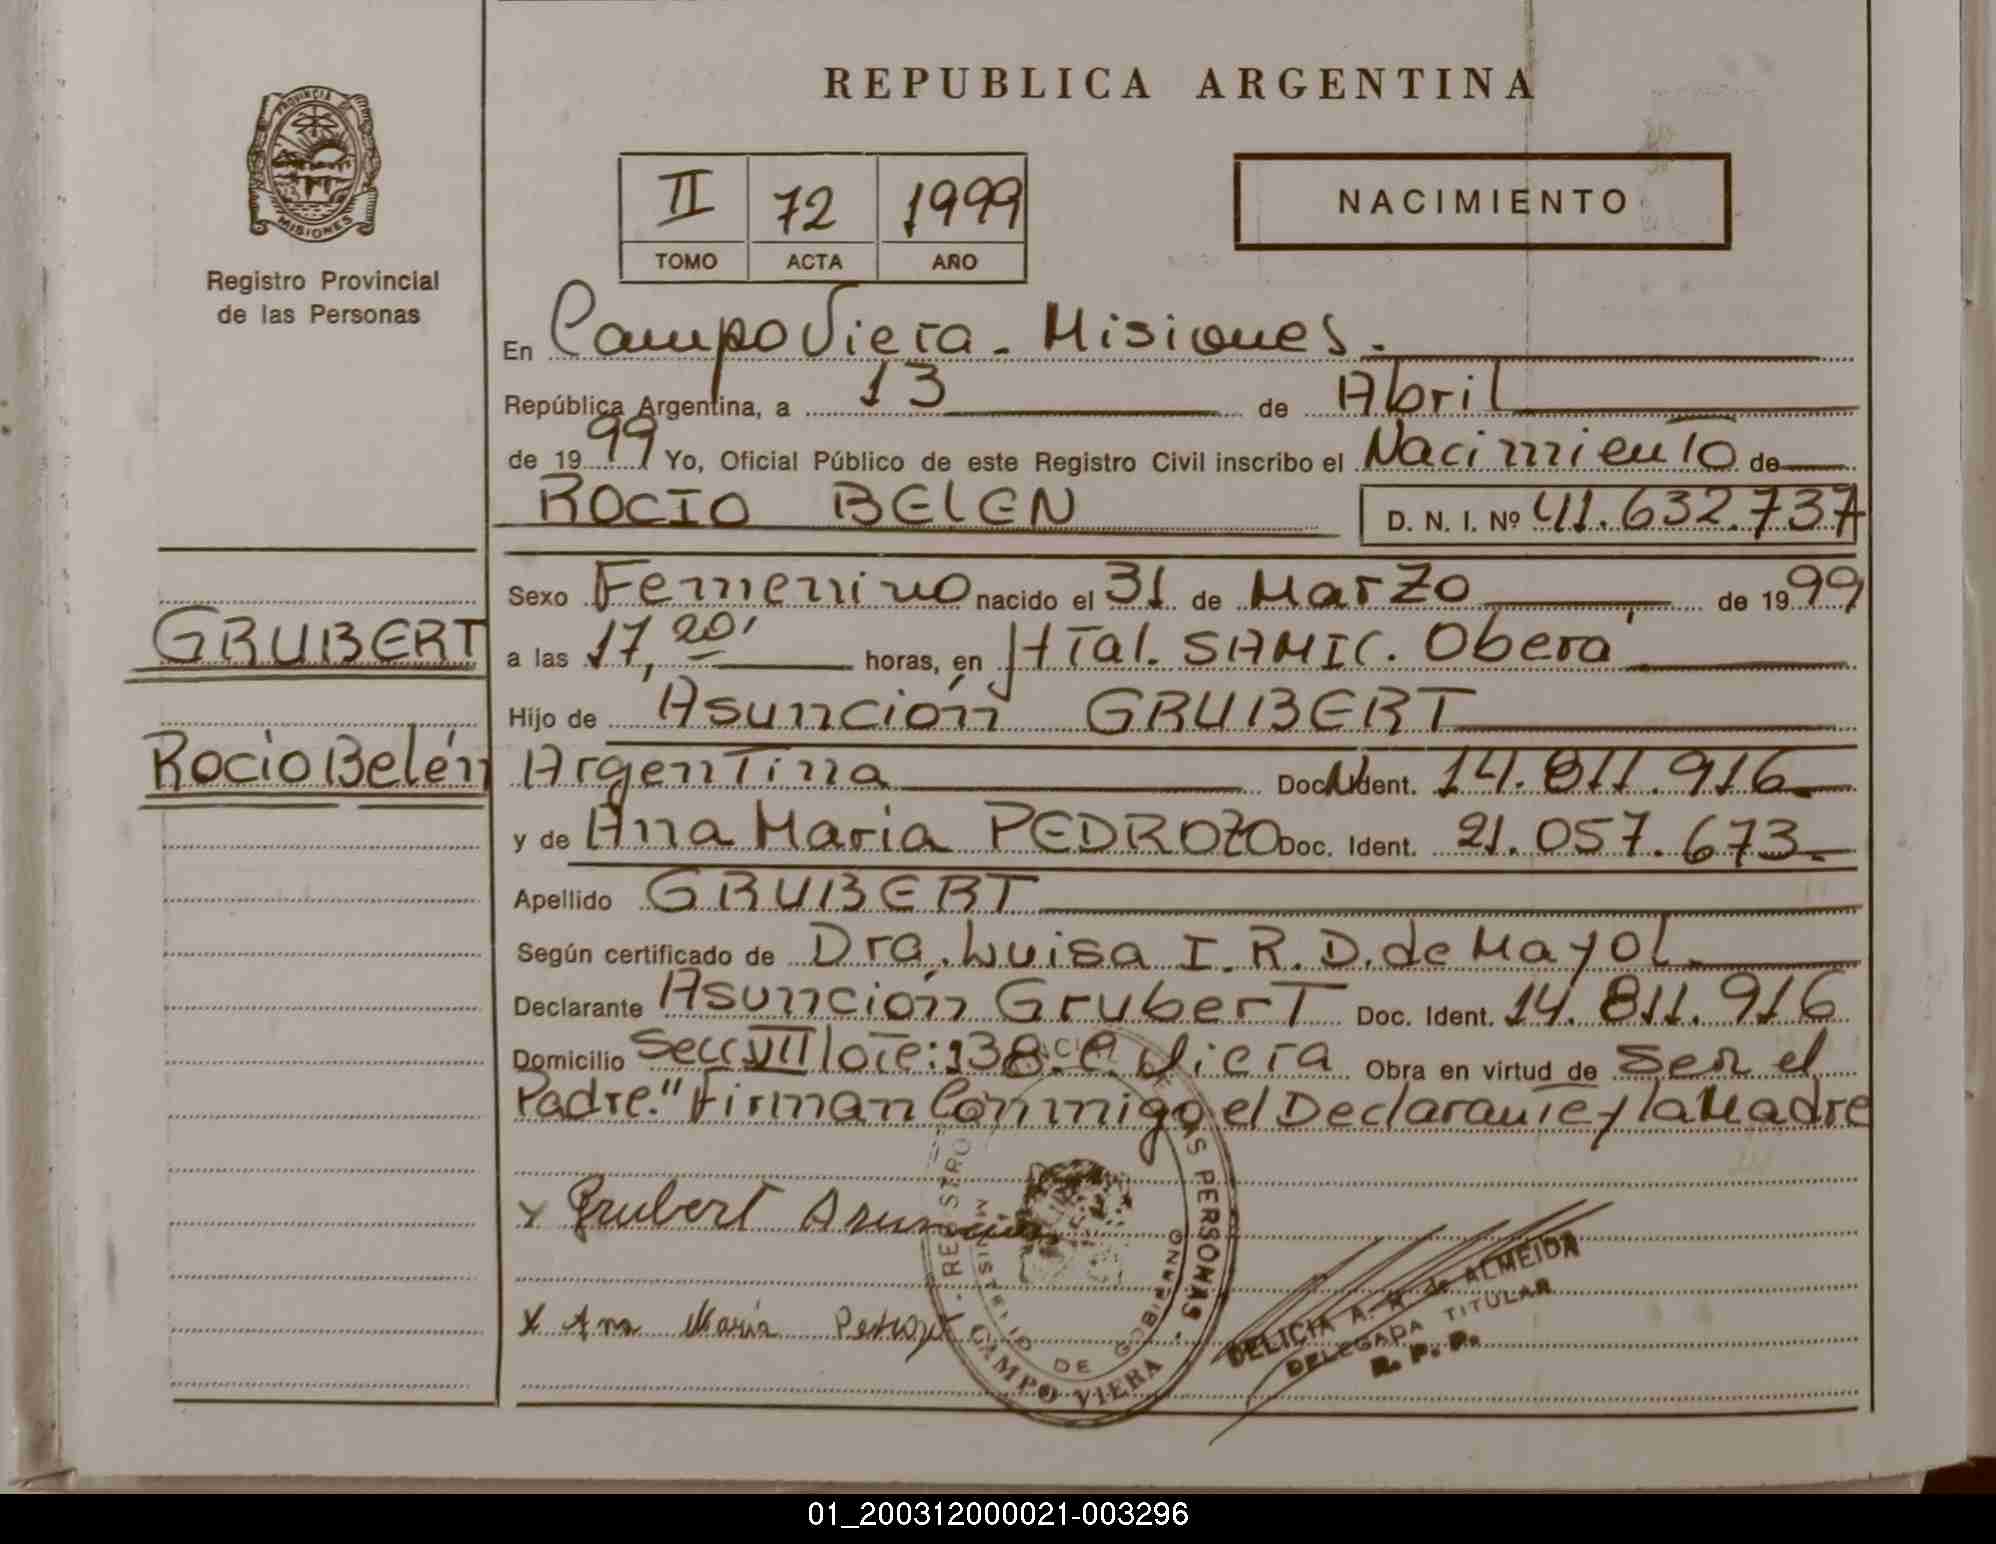 REPUBLICA ARGENTINA
PROVINCIA
MISIONES
Registro Provincial
de las Personas
II 72 1999
TOMO ACTA AÑO
NACIMIENTO
En Campo Viera - Misiones.
República Argentina, a 13 de Abril
de 1999 Yo, Oficial Público de este Registro Civil inscribo el Nacimiento de
ROCIO BELEN D. N. I. Nº 41.632.737
Sexo Femenino nacido el 31 de Marzo de 1999
GRUBERT
a las 17,20' horas, en Htal. SAMIC. Oberá
Hijo de Asunción GRUBERT
Rocio Belén
Argentina Doc. Ident. 14.811.916.
y de Ana Maria PEDROZO Doc. Ident. 21.057.673.
Apellido GRUBERT
Según certificado de Dra. Luisa I. R. D. de Mayol.
Declarante Asunción Grubert Doc. Ident. 14.811.916
Domicilio Secc VIII lote: 138. C. Viera Obra en virtud de ser el
Padre." Firman Conmigo el Declarante y la Madre
x Grubert Asuncion
x Ana María Pedrozo
REGISTRO LAS PERSONAS
MINISTERIO DE GOBIERNO
CAMPO VIERA
DELICIA A. R. de ALMEIDA
DELEGADA TITULAR
R. P. P.
01_200312000021-003296